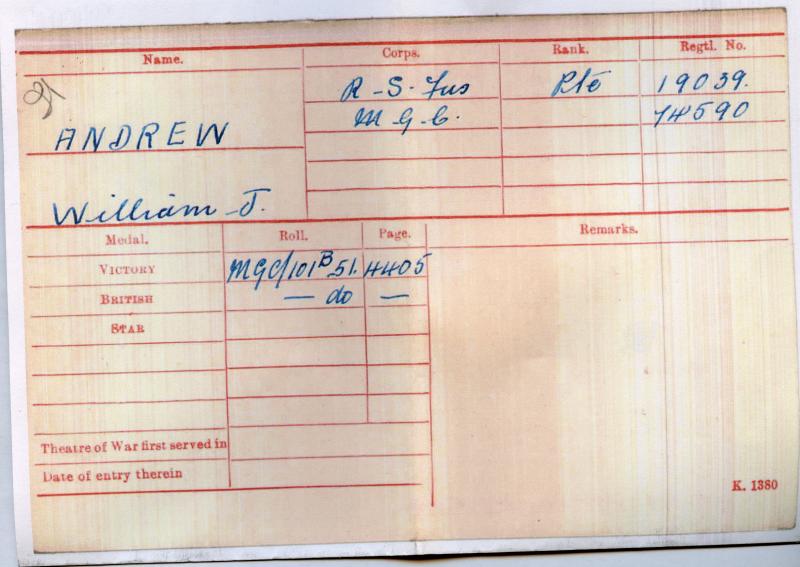 Name. Corps. Rank. Regtl. No.
R-S. Fus Pte 19039.
M.G.C. 74590
ANDREW
William J.
Medal. Roll. Page. Remarks.
VICTORY MGC/101 B 51. 4405
BRITISH — do —
STAR
Theatre of War first served in
Date of entry therein
K. 1380